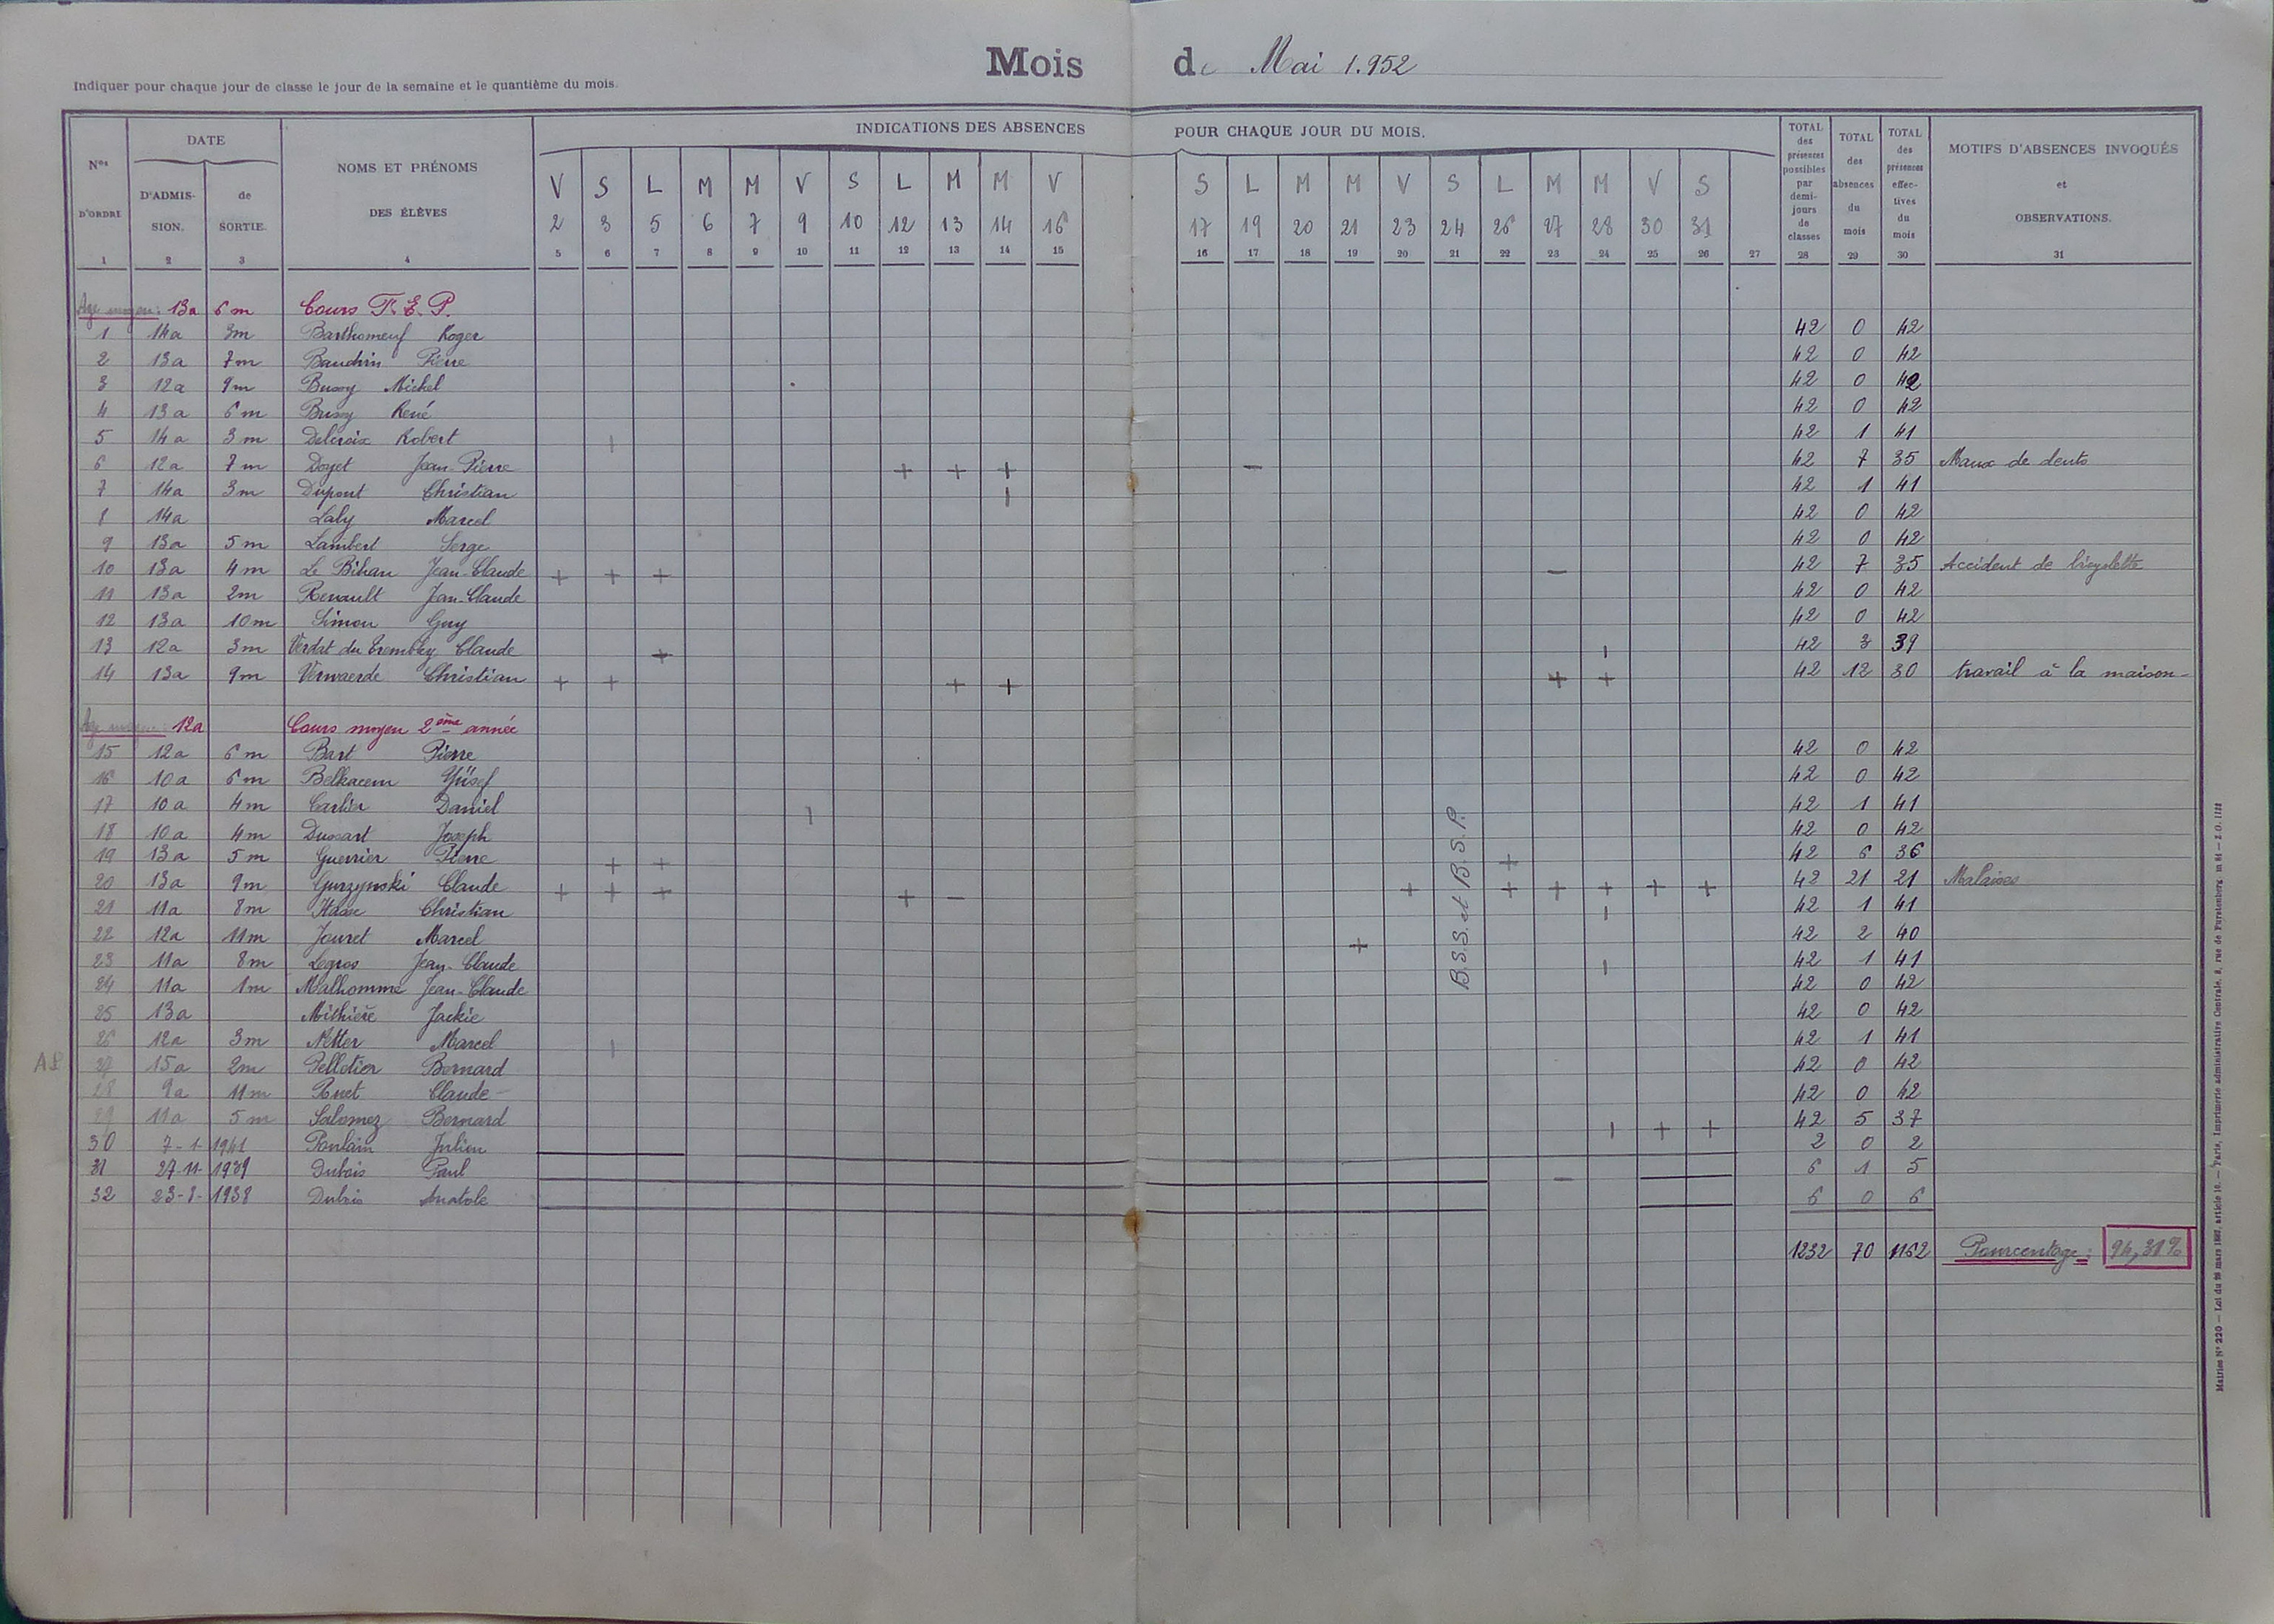 Mois de Mai 1.952
Indiquer pour chaque jour de classe le jour de la semaine et le quantième du mois.
Nos D'ORDRE DATE D'ADMISSION. de SORTIE. NOMS ET PRÉNOMS DES ÉLÈVES INDICATIONS DES ABSENCES POUR CHAQUE JOUR DU MOIS. TOTAL des présences possibles par demi-jours de classes TOTAL des absences du mois TOTAL des présences effectives du mois MOTIFS D'ABSENCES INVOQUÉS et OBSERVATIONS.
V S L M M V S L M M V S L M M V S L M M V S
2 3 5 6 7 9 10 12 13 14 16 17 19 20 21 23 24 26 27 28 30 31
1 2 3 4 5 6 7 8 9 10 11 12 13 14 15 16 17 18 19 20 21 22 23 24 25 26 27 28 29 30 31
Age moyen : 13a 6m Cours F. E. P.
1 14a 3m Barthomeuf Roger 42 0 42
2 13a 7m Baudrin Pierre 42 0 42
3 12a 9m Bussy Michel 42 0 42
4 13a 6m René 42 0 42
5 14a 3m Delcroix Robert | 42 1 41
6 12a 7m Doyet Jean-Pierre + + + - 42 7 35 Maux de dents
7 14a 3m Dupont Christian | 42 1 41
8 14a Laly Marcel 42 0 42
9 13a 5m Lambert Serge 42 0 42
10 13a 4m Le Bihan Jean-Claude + + + - 42 7 35 Accident de bicyclette
11 13a 2m Renault Jean-Claude 42 0 42
12 13a 10m Simon Guy 42 0 42
13 12a 3m Verdat du Tremblay Claude + | 42 3 39
14 13a 9m Verwaerde Christian + + + + + + 42 12 30 travail à la maison -
Age moyen : 12a Cours moyen 2ème année
15 12a 6m Bart Pierre 42 0 42
16 10a 6m Belkacem Yüsef 42 0 42
17 10a 4m Carlier Daniel | 42 1 41
18 10a 4m Dussart Joseph 42 0 42
19 13a 5m Guerrier Pierre + + + 42 6 36
20 13a 9m Gurzynski Claude + + + + - + + + + + + 42 21 21 Malaises
21 11a 8m Haase Christian | 42 1 41
22 12a 11m Jouret Marcel + 42 2 40
23 11a 8m Legros Jean-Claude | 42 1 41
24 11a 1m Malhomme Jean-Claude 42 0 42
25 13a Jackie 42 0 42
26 12a 3m Netter Marcel | 42 1 41
27 15a 2m Pelletier Bernard 42 0 42
28 9a 11m Claude 42 0 42
29 11a 5m Salomez Bernard | + + 42 5 37
30 7-1-1941 Poulain Julien 2 0 2
31 27-11-1939 Dubois Paul - 6 1 5
32 23-8-1938 Dubois Anatole 6 0 6
B.S.S. et B.S.P.
1232 70 1162 Pourcentage : 94,31%
Mairies N° 220 — Loi du 28 mars 1882, article 10. — Paris, Imprimerie administrative Centrale, 8, rue de Furstenberg.